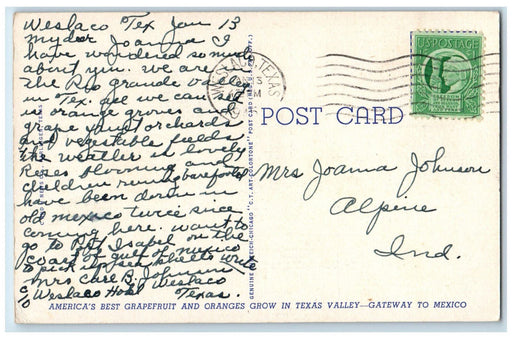 Weslaco Tex Jan 13
my dear Joanna I
have wondered so much
about you. we are in
The Rio Grande valley
in Tex. all we can see
is orange groves and
grape fruit orchards
and vegetable fields
the weather is lovely
Roses blooming and
children runing barefooted
have been down in
old mexico twice since
coming here. want to
go to Port Isabel on the
coast of gulf of mexico
to pick up seashells write
mrs Carl B. Johnson
c/o Weslaco Hotel Weslaco
Texas.
WESLACO, TEXAS
U.S. POSTAGE
POST CARD
Mrs Joanna Johnson
Alpine
Ind.
AMERICA'S BEST GRAPEFRUIT AND ORANGES GROW IN TEXAS VALLEY—GATEWAY TO MEXICO